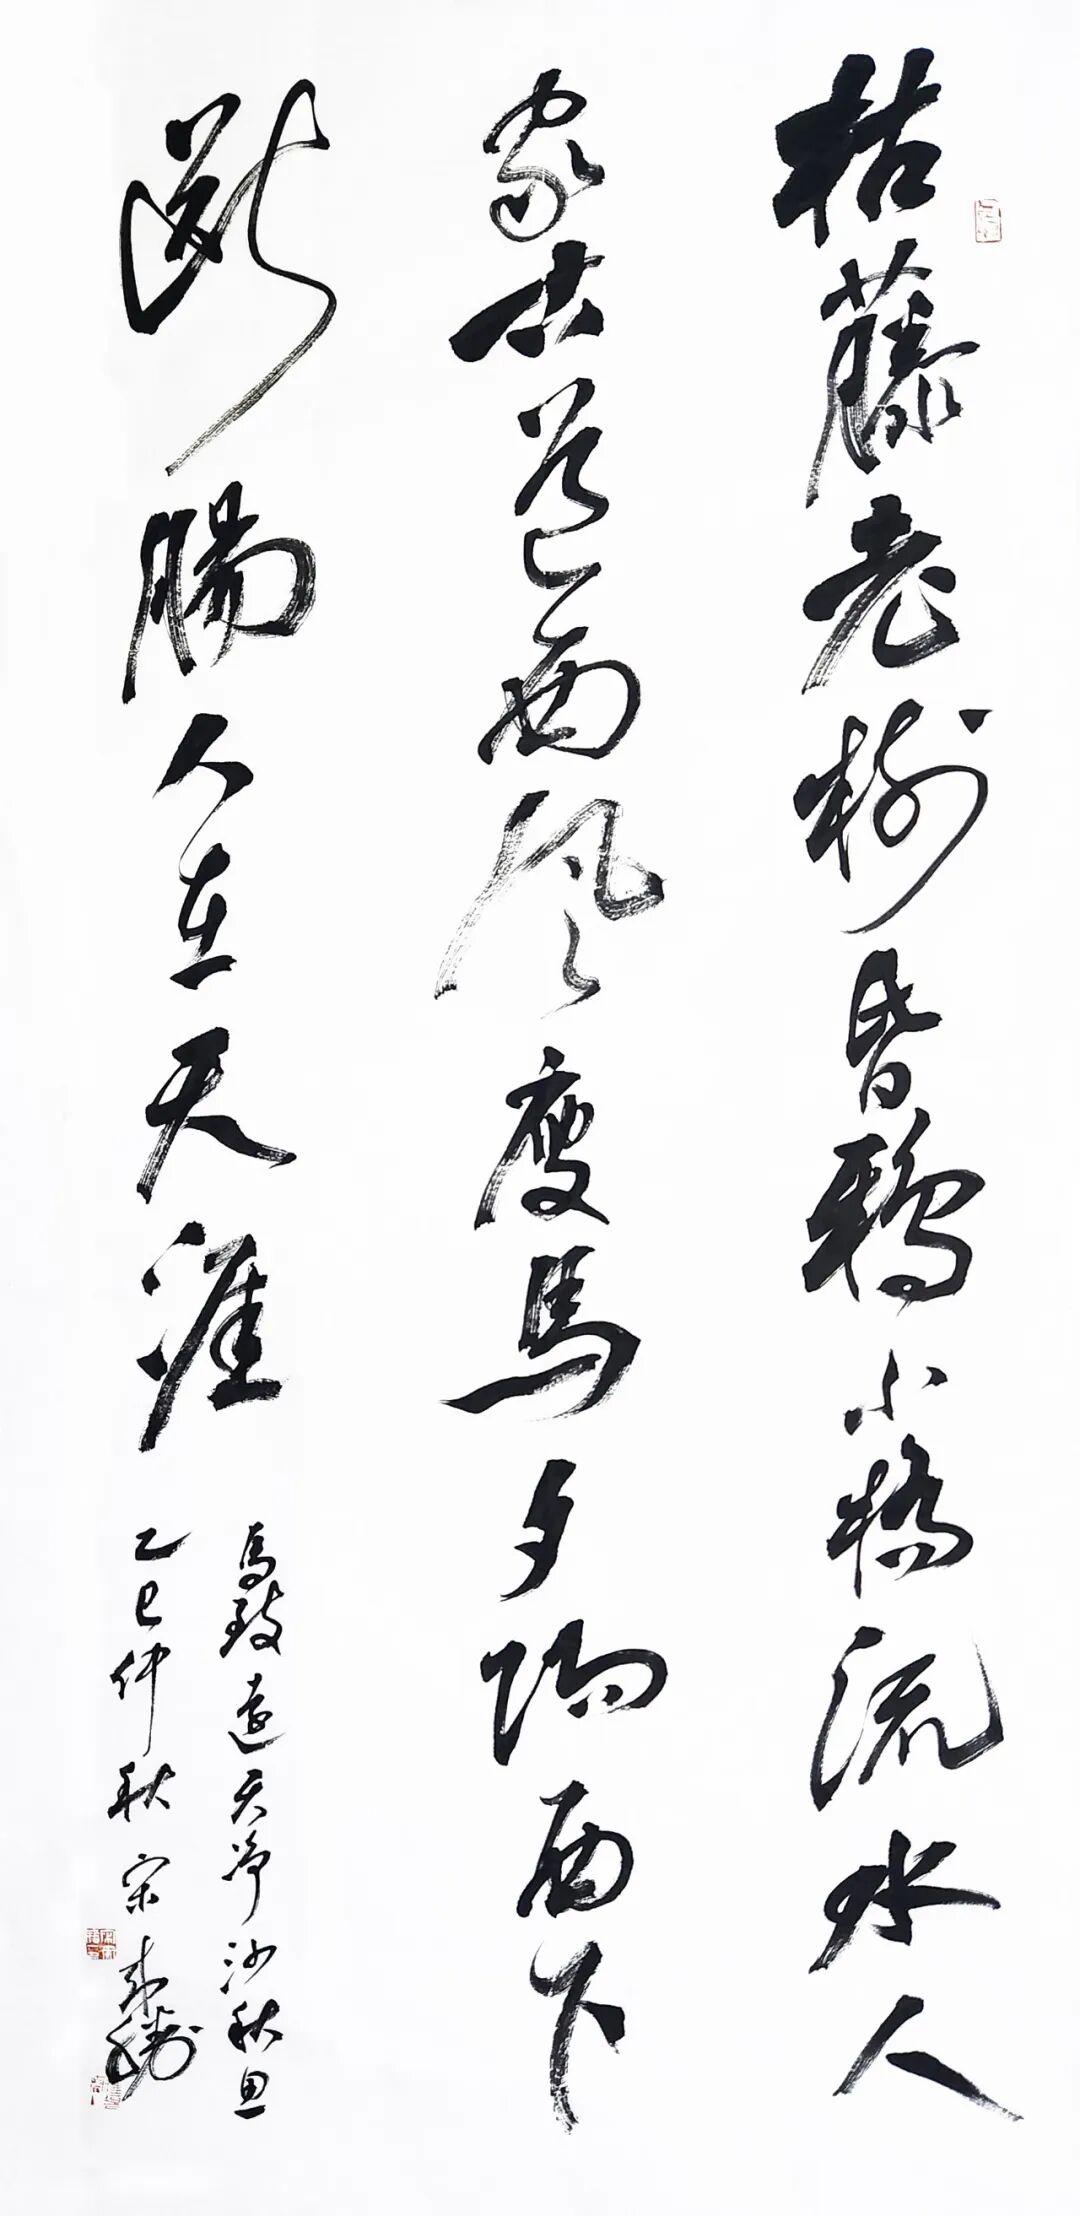 枯藤老树昏鸦小橋流水人
家古道西风瘦馬夕阳西下
断腸人在天涯
馬致遠天净沙秋思
乙巳仲秋宋